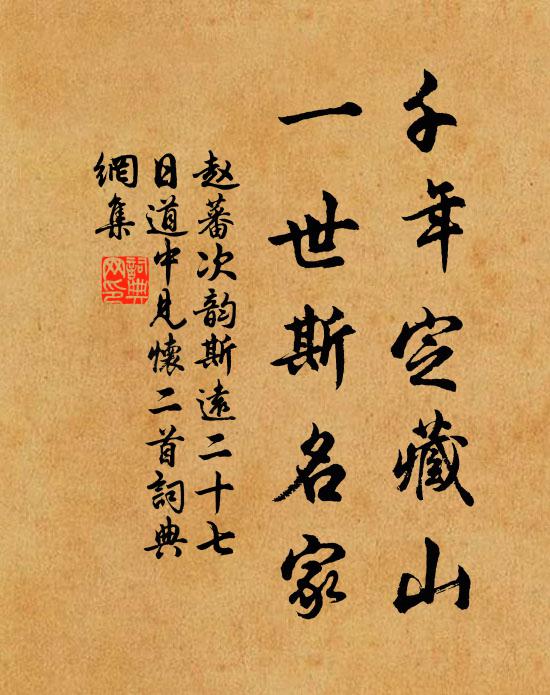 千年定藏山
一世斯名家
赵蕃次韵斯远二十七
日道中见懷二首詞典
網集
詞典網印